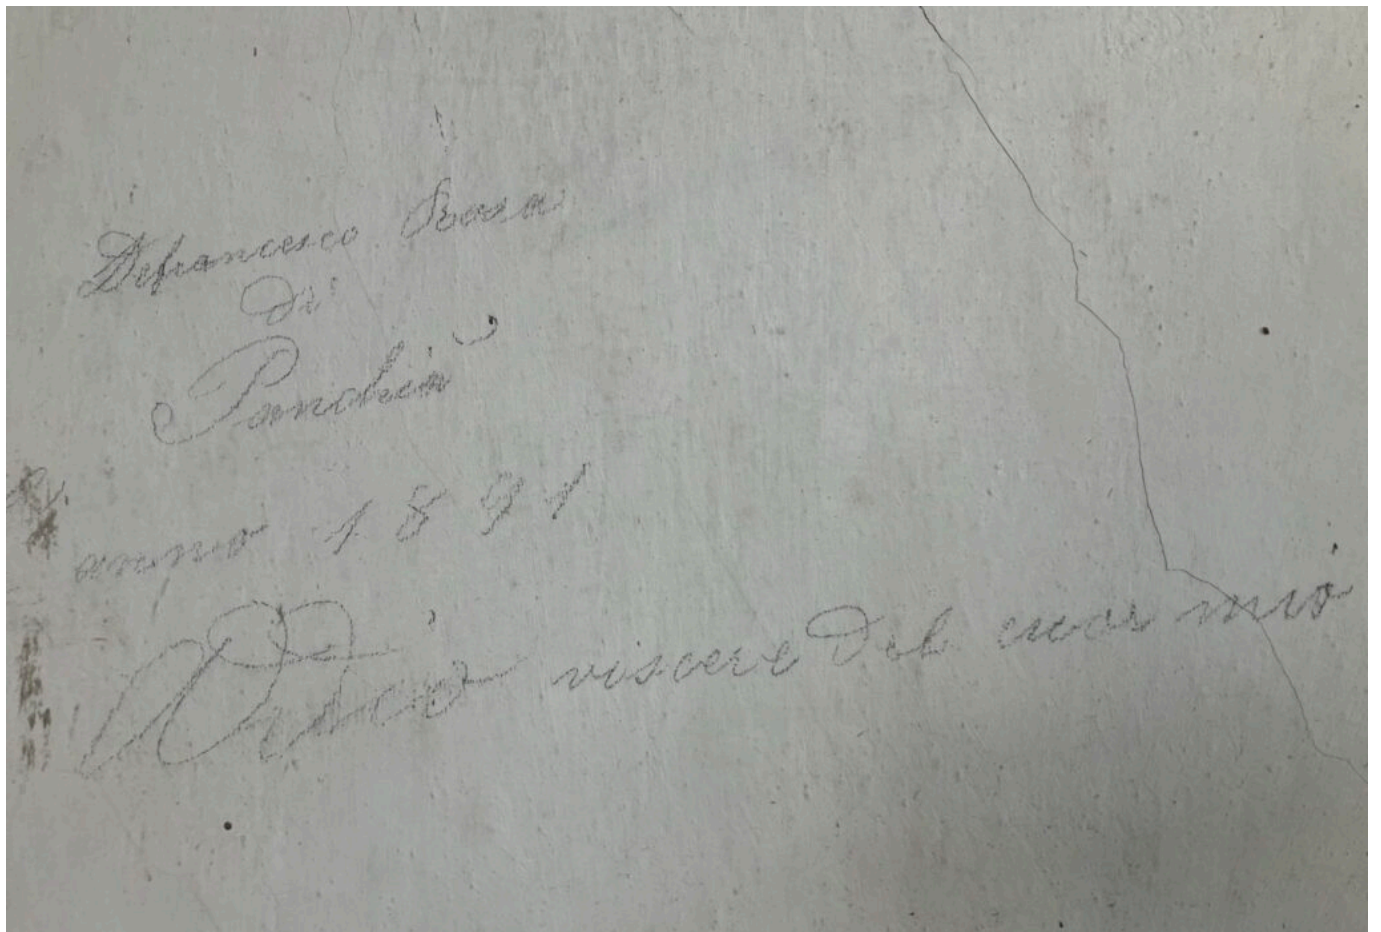 Defrancesco Rosa
di
Panchià
anno 1891
viscere del cuor mio